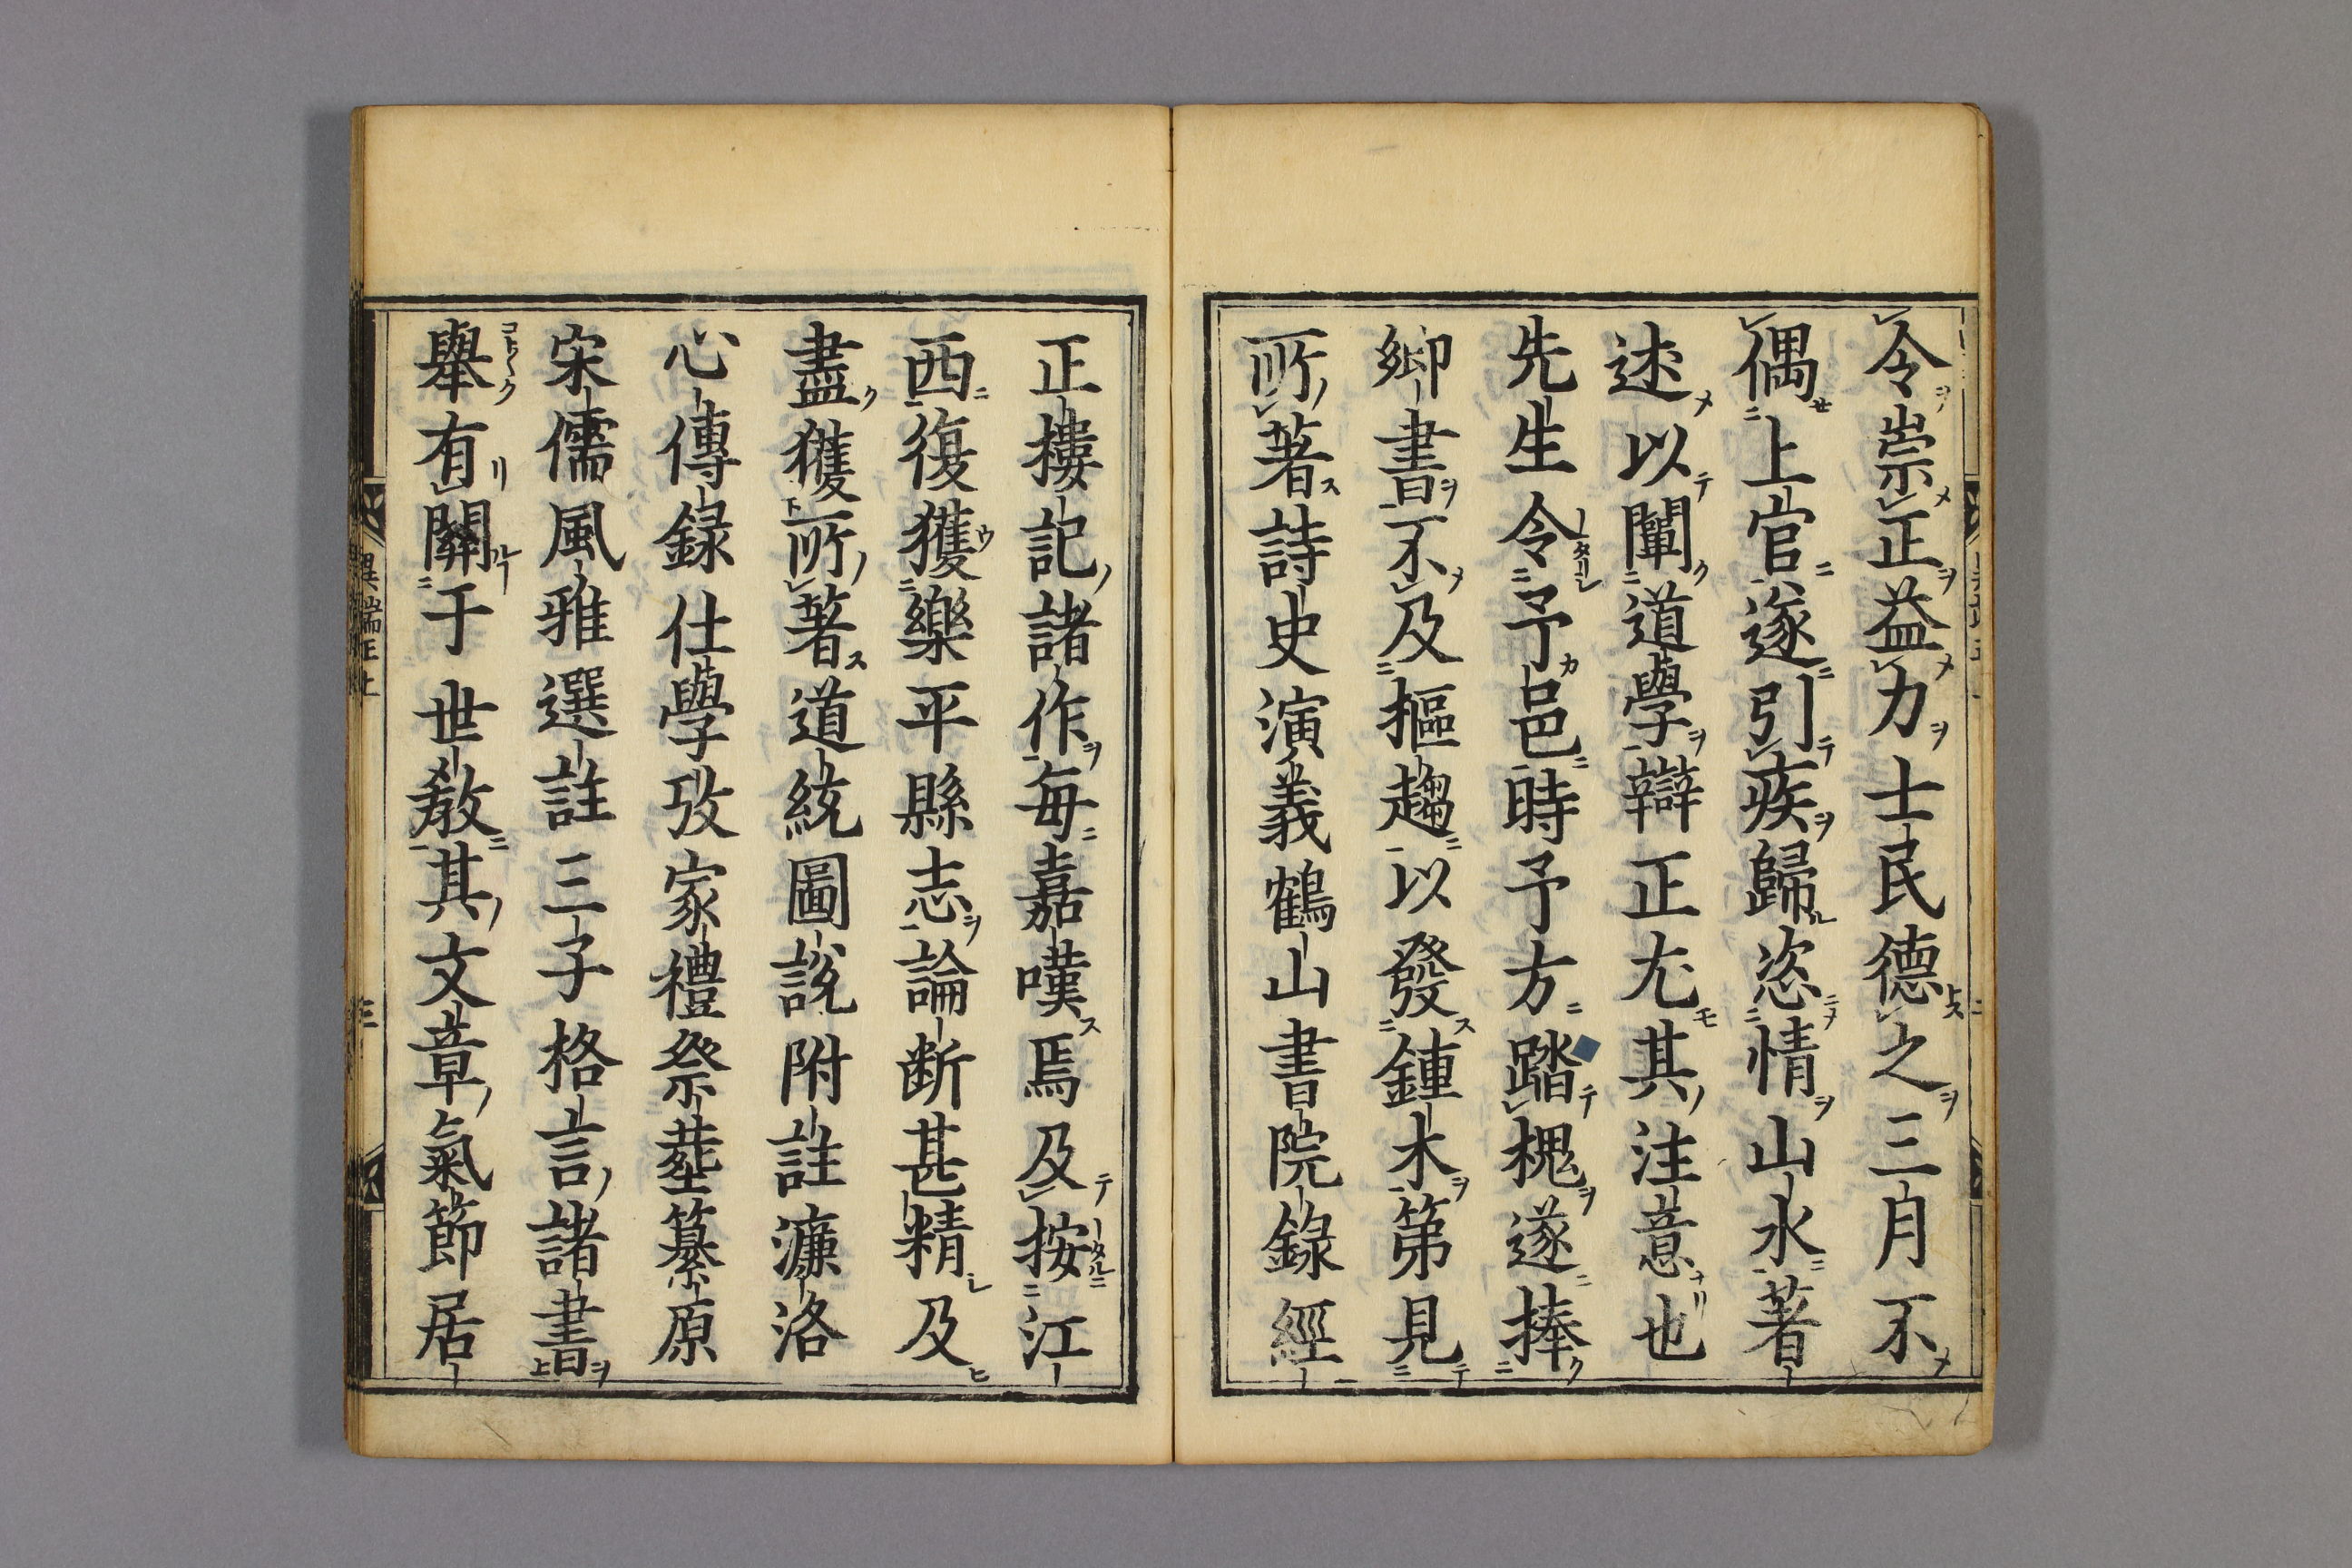 令崇正益力士民德之三月不
偶上官遂引疾歸恣情山水著
述以闡道學辯正尤其注意也
先生令予邑時予方踏槐遂捧
鄉書不及摳趨以發鍾木第見
所著詩史演義鶴山書院錄經
正樓記諸作每嘉嘆焉及按江
西復獲樂平縣志論断甚精及
盡獲所著道統圖說附註濂洛
心傳錄仕學攷家禮祭塟纂原
宋儒風雅選註三子格言諸書
舉有關于世教其文章氣節居
異端正上